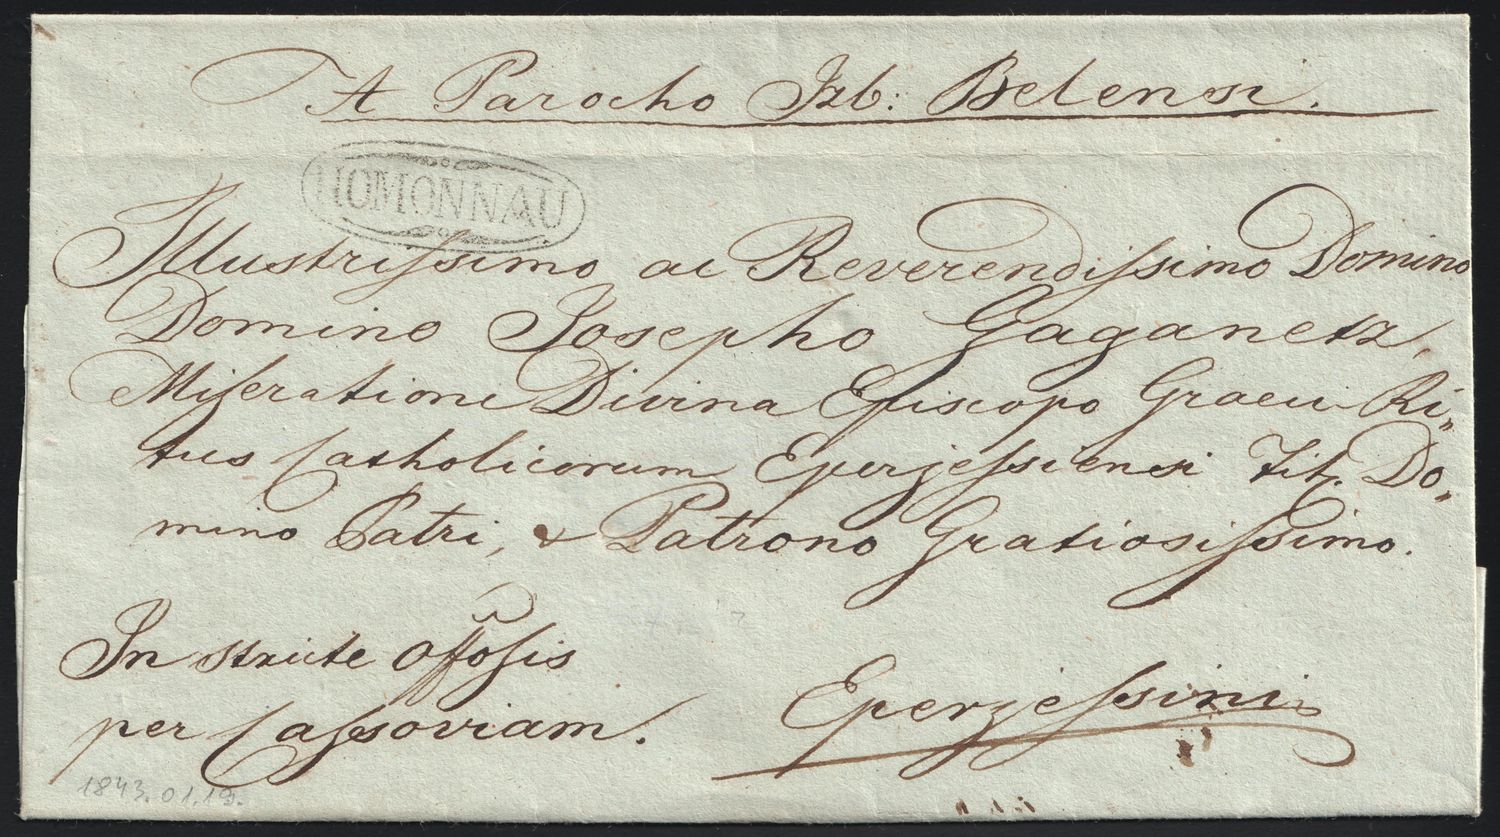 A Parocho Izb: Belensi.
HOMONNAU
Illustrissimo ac Reverendissimo Domino
Domino Josepho Gaganetz,
Miseratione Divina Episcopo Graeci Ri„
tus Catholicorum Eperjessiensi Tit. Do„
mino Patri, & Patrono Gratiosissimo.
In stricte Offosis
per Cassoviam.
Eperjessini
1843.01.19.